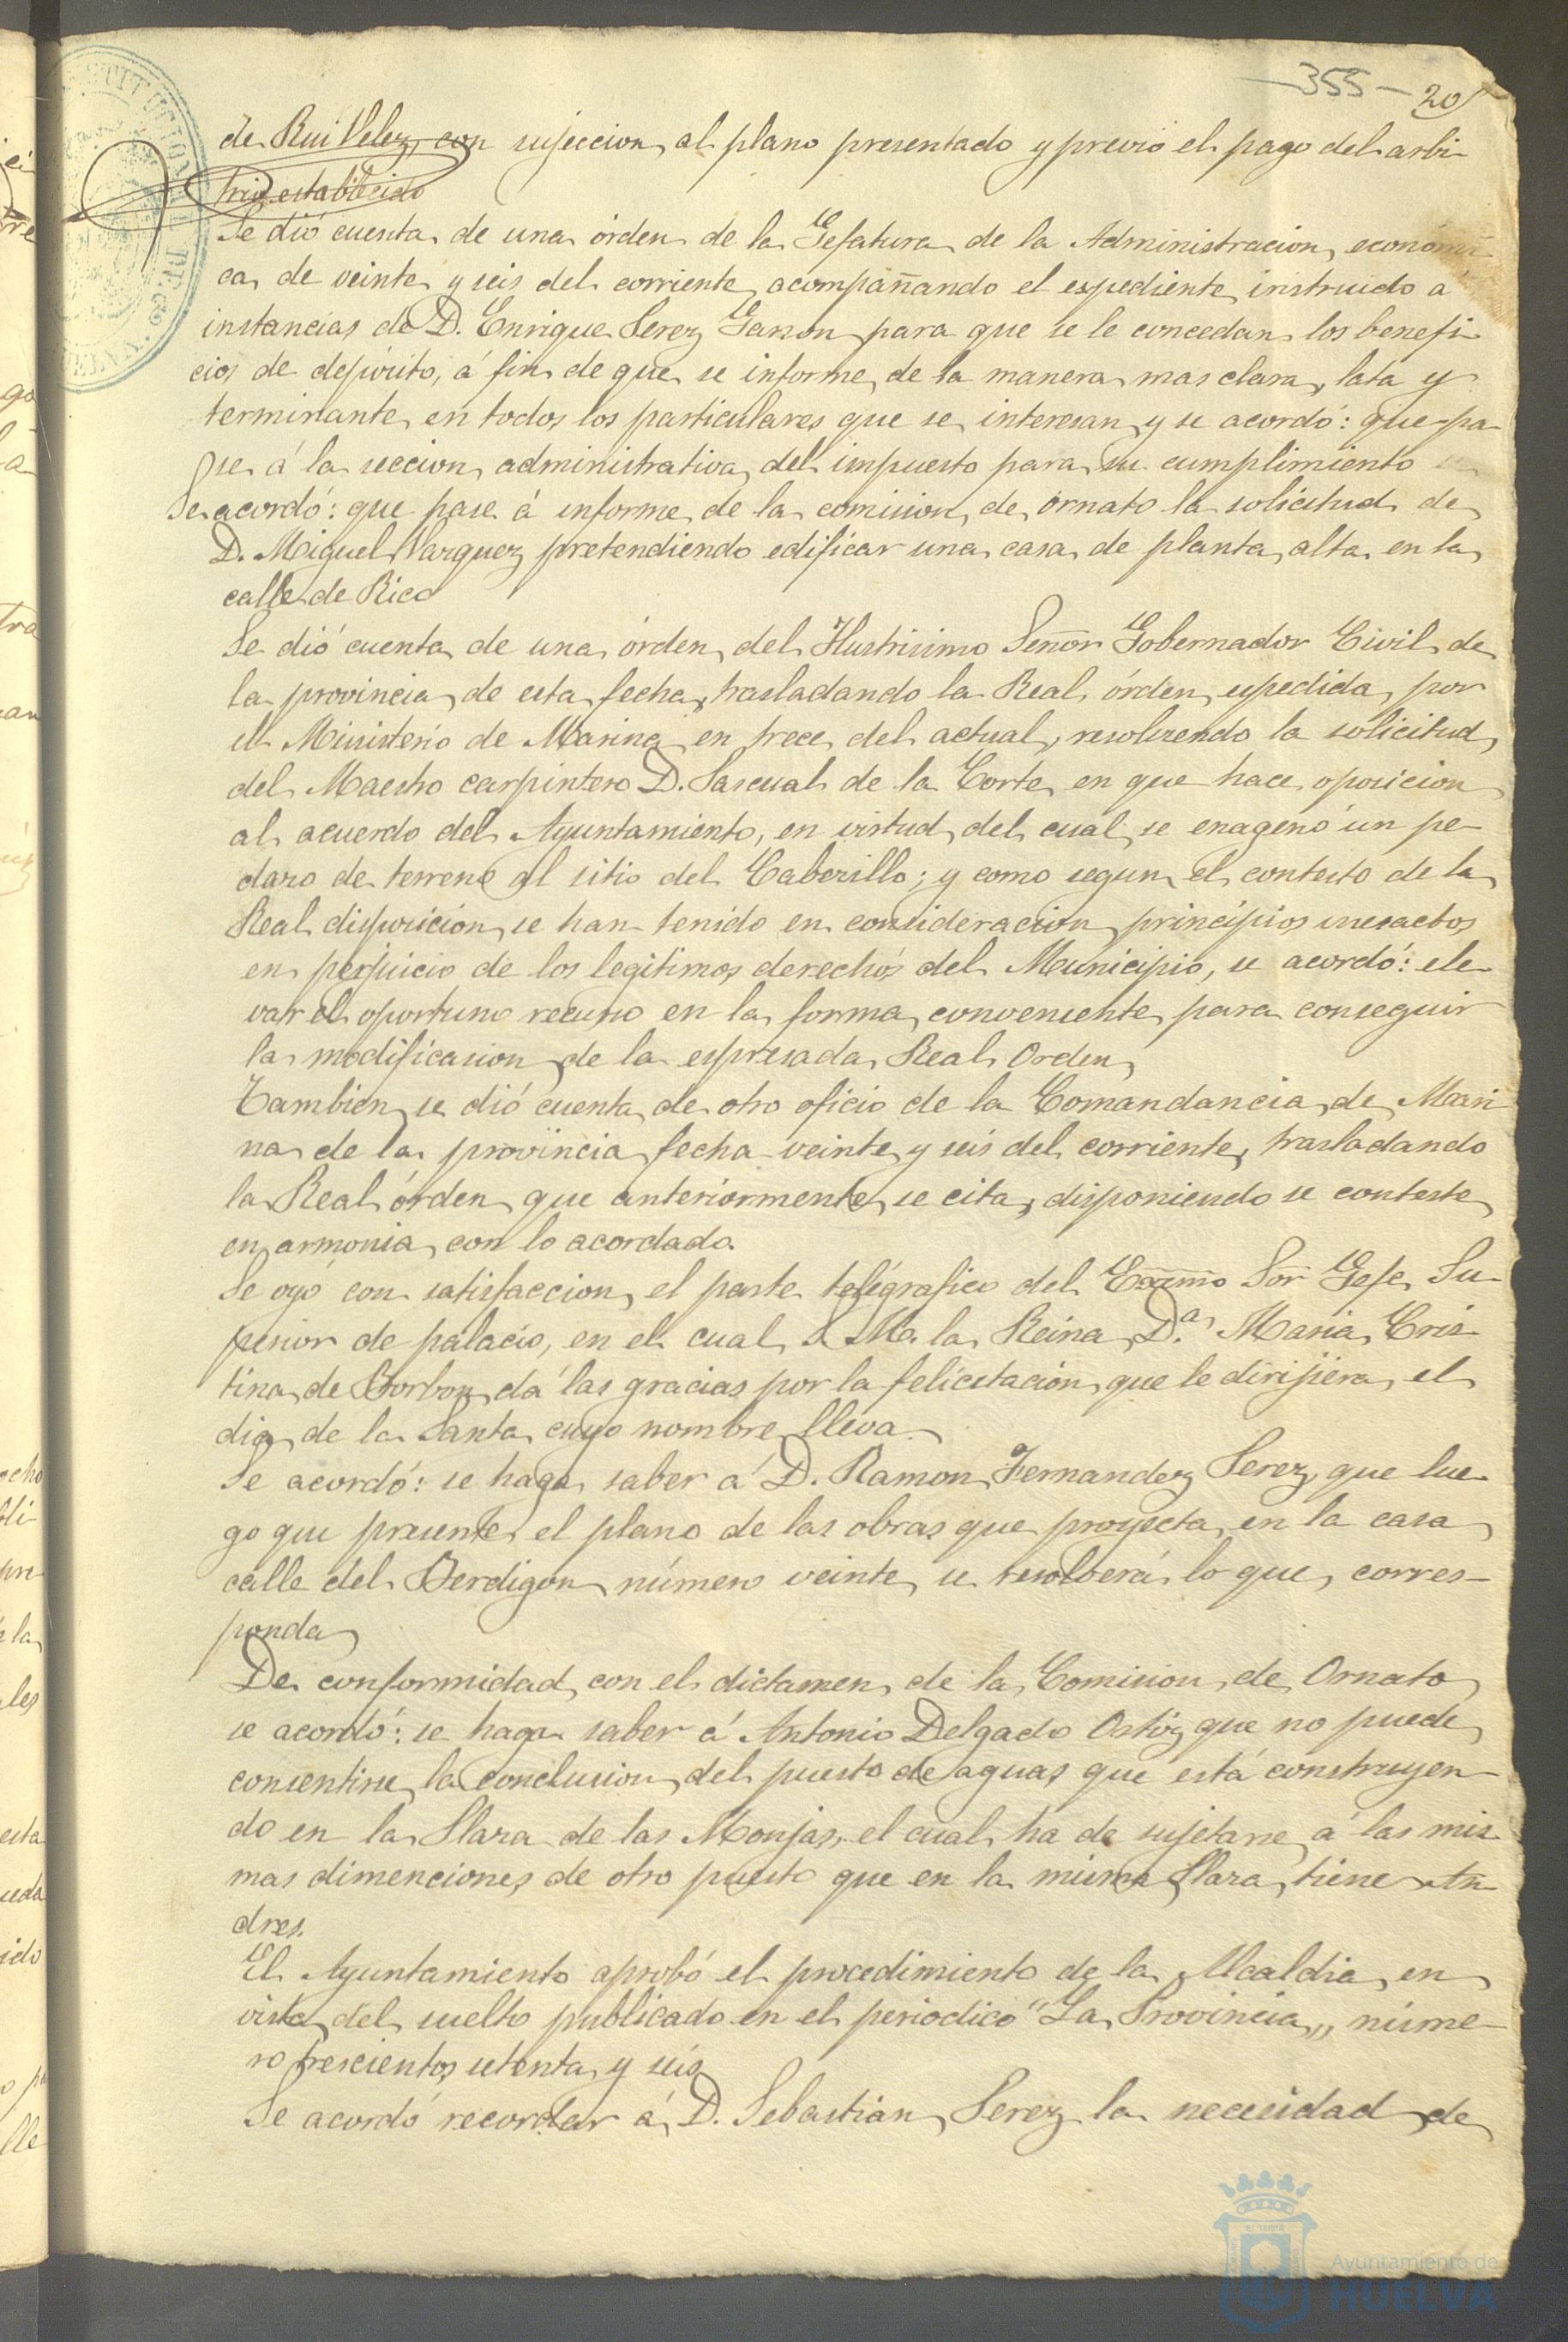 -355- 20
de Rui Velez, con sujeccion al plano presentado y previo el pago del arbi-
trio establecido
Se dió cuenta de una órden de la Gefatura de la Administracion económi-
ca de veinte y seis del corriente acompañando el espediente instruido á
instancias de D. Enrique Perez Ganon para que se le concedan los benefi-
cios de depósito, á fin de que se informe de la manera mas clara, lata y
terminante en todos los particulares que se interesan y se acordó: que pa-
se á la seccion administrativa del impuesto para su cumplimiento
Se acordó: que pase á informe de la comision de ornato la solicitud de
D. Miguel Vazquez pretendiendo edificar una casa de planta alta en la
calle de Rico
Se dió cuenta de una órden del Ilustrisimo Señor Gobernador Civil de
la provincia de esta fecha, trasladando la Real órden espedida por
el Ministerio de Marina en trece del actual, resolviendo la solicitud
del Maestro carpintero D. Pascual de la Corte en que hace oposicion
al acuerdo del Ayuntamiento, en virtud del cual se enagenó un pe-
dazo de terreno al sitio del Cabezillo; y como segun el contesto de la
Real disposicion se han tenido en consideracion principios inesactos
en perjuicio de los legitimos derechos del Municipio, se acordó: ele-
var el oportuno recurso en la forma conveniente para conseguir
la modificasion de la espresada Real Orden
Tambien se dió cuenta de otro oficio de la Comandancia de Mari-
na de la provincia fecha veinte y seis del corriente, trasladando
la Real órden que anteriormente se cita, disponiendo se conteste
en armonia con lo acordado.
Se oyó con satisfaccion el parte telégrafico del Exmo Sor Gefe Su-
perior de palacio, en el cual S. M. la Reina D.ª Maria Cris-
tina de Borbon dá las gracias por la felicitación que le dirijiera el
dia de la Santa cuyo nombre lleva
Se acordó: se haga saber á D. Ramon Fernandez Perez, que lue-
go que presente el plano de las obras que proyecta en la casa
calle del Berdigon número veinte se resolverá lo que corres-
ponda
De conformidad con el dictamen de la Comision de Ornato
se acordó: se haga saber á Antonio Delgado Ortiz que no puede
consentirse la conclusion del puesto de aguas que está construyen-
do en la Plaza de las Monjas, el cual ha de sujetarse á las mis-
mas dimenciones de otro puesto que en la misma Plaza tiene An-
dres.
El Ayuntamiento aprobó el procedimiento de la Alcaldia en
vista del suelto publicado en el periodico "La Provincia„ núme-
ro trescientos setenta y seis
Se acordó recordar á D. Sebastián Perez la necesidad de
Ayuntamiento de
HUELVA